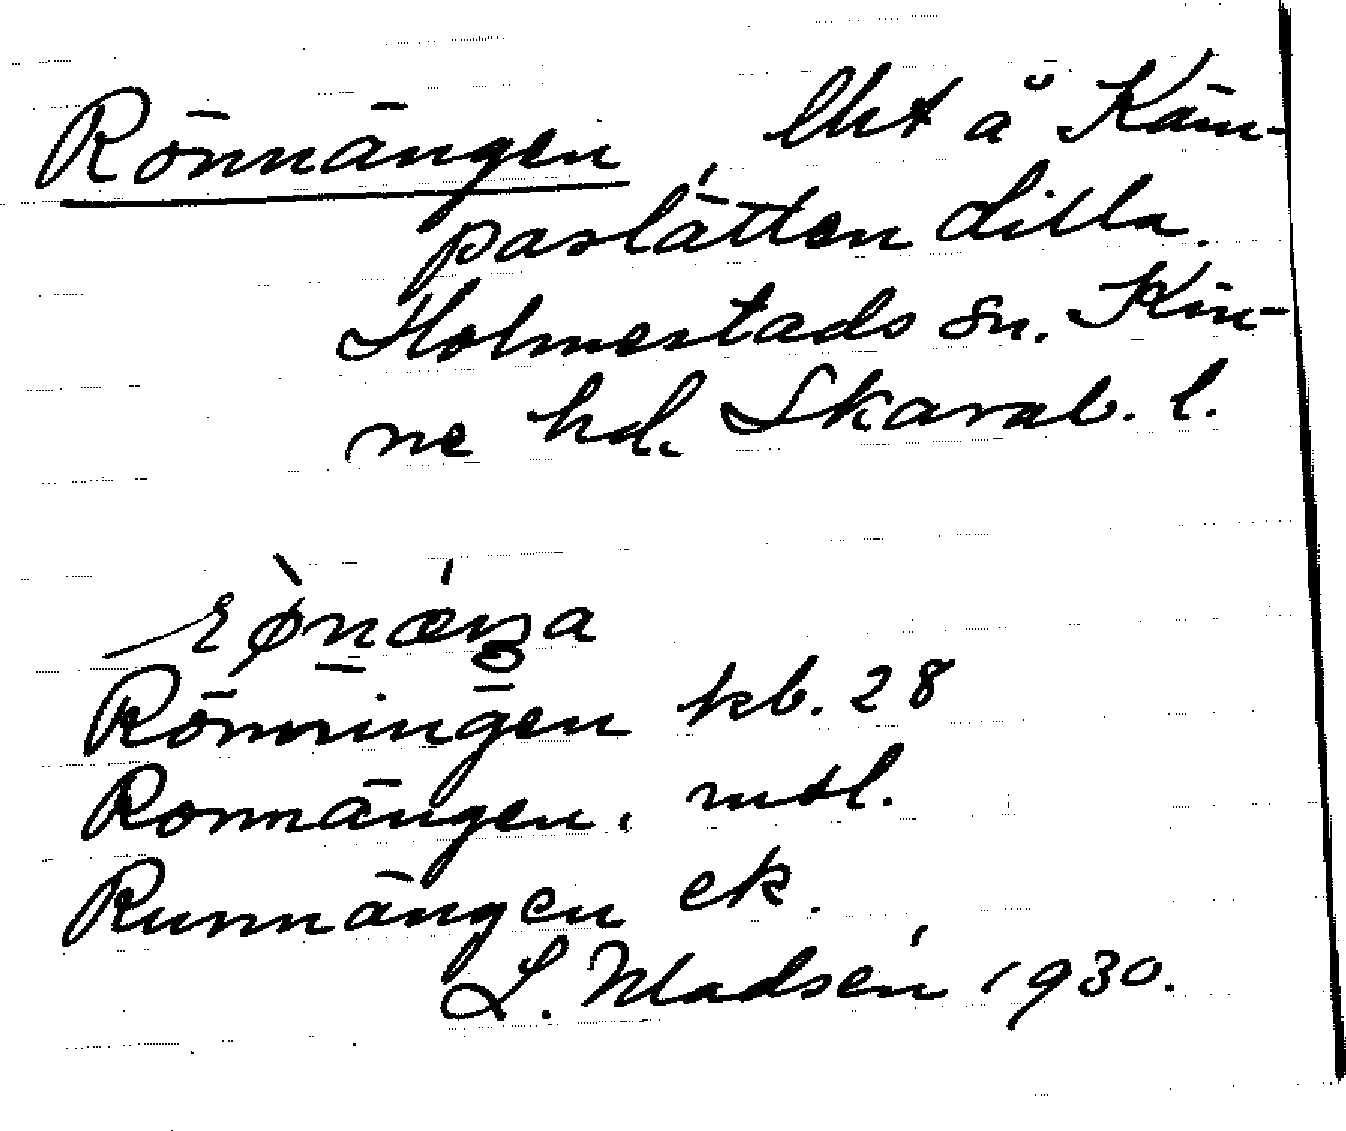 Rönnängen, lht å Käm-
paslätten dilla.
Holmestads sn. Kin-
ne hd. Skarab. l.
rø̀nǽŋa
Rönningen kb. 28
Ronnängen. mtl.
Runnängen ek.
L. Madsén 1930.